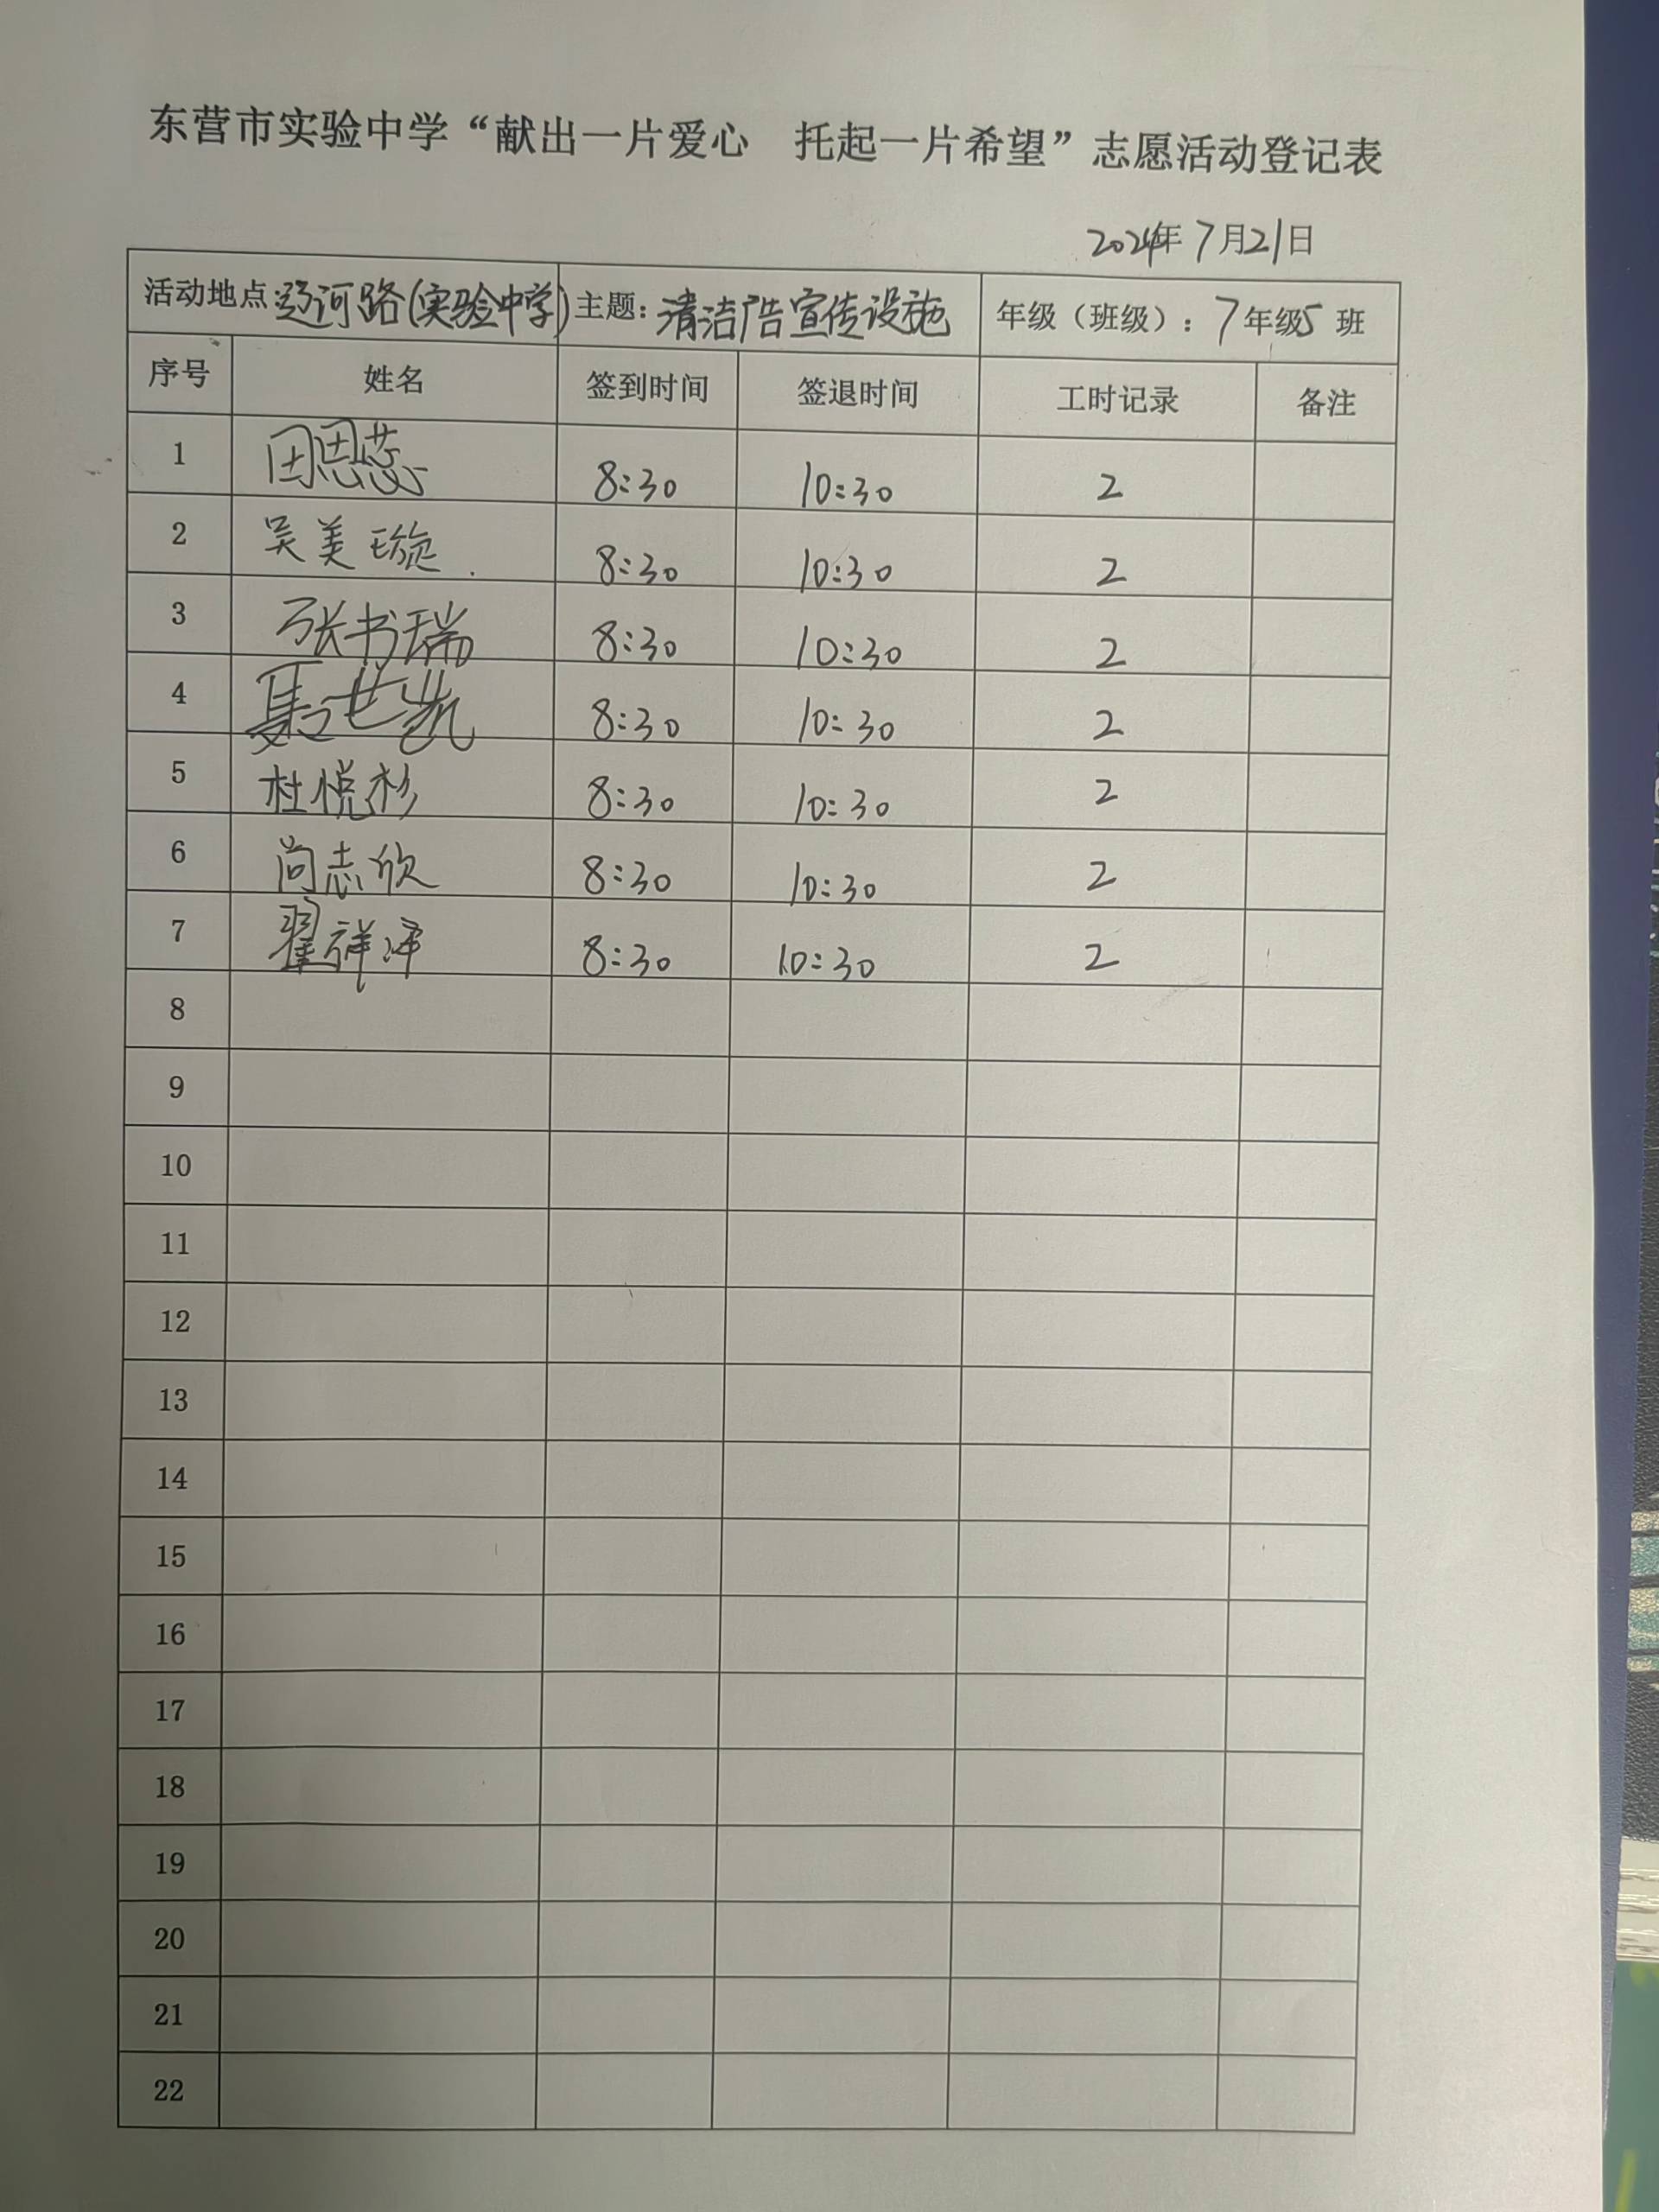 东营市实验中学“献出一片爱心 托起一片希望”志愿活动登记表
2024年 7月21日
活动地点:辽河路(实验中学) 主题:清洁广告宣传设施 年级（班级）：7年级5班
序号 姓名 签到时间 签退时间 工时记录 备注
1 田思蕊 8:30 10:30 2
2 吴美璇 8:30 10:30 2
3 张书瑞 8:30 10:30 2
4 聂世凯 8:30 10:30 2
5 杜悦杉 8:30 10:30 2
6 尚志欣 8:30 10:30 2
7 翟祥泽 8:30 10:30 2
8
9
10
11
12
13
14
15
16
17
18
19
20
21
22